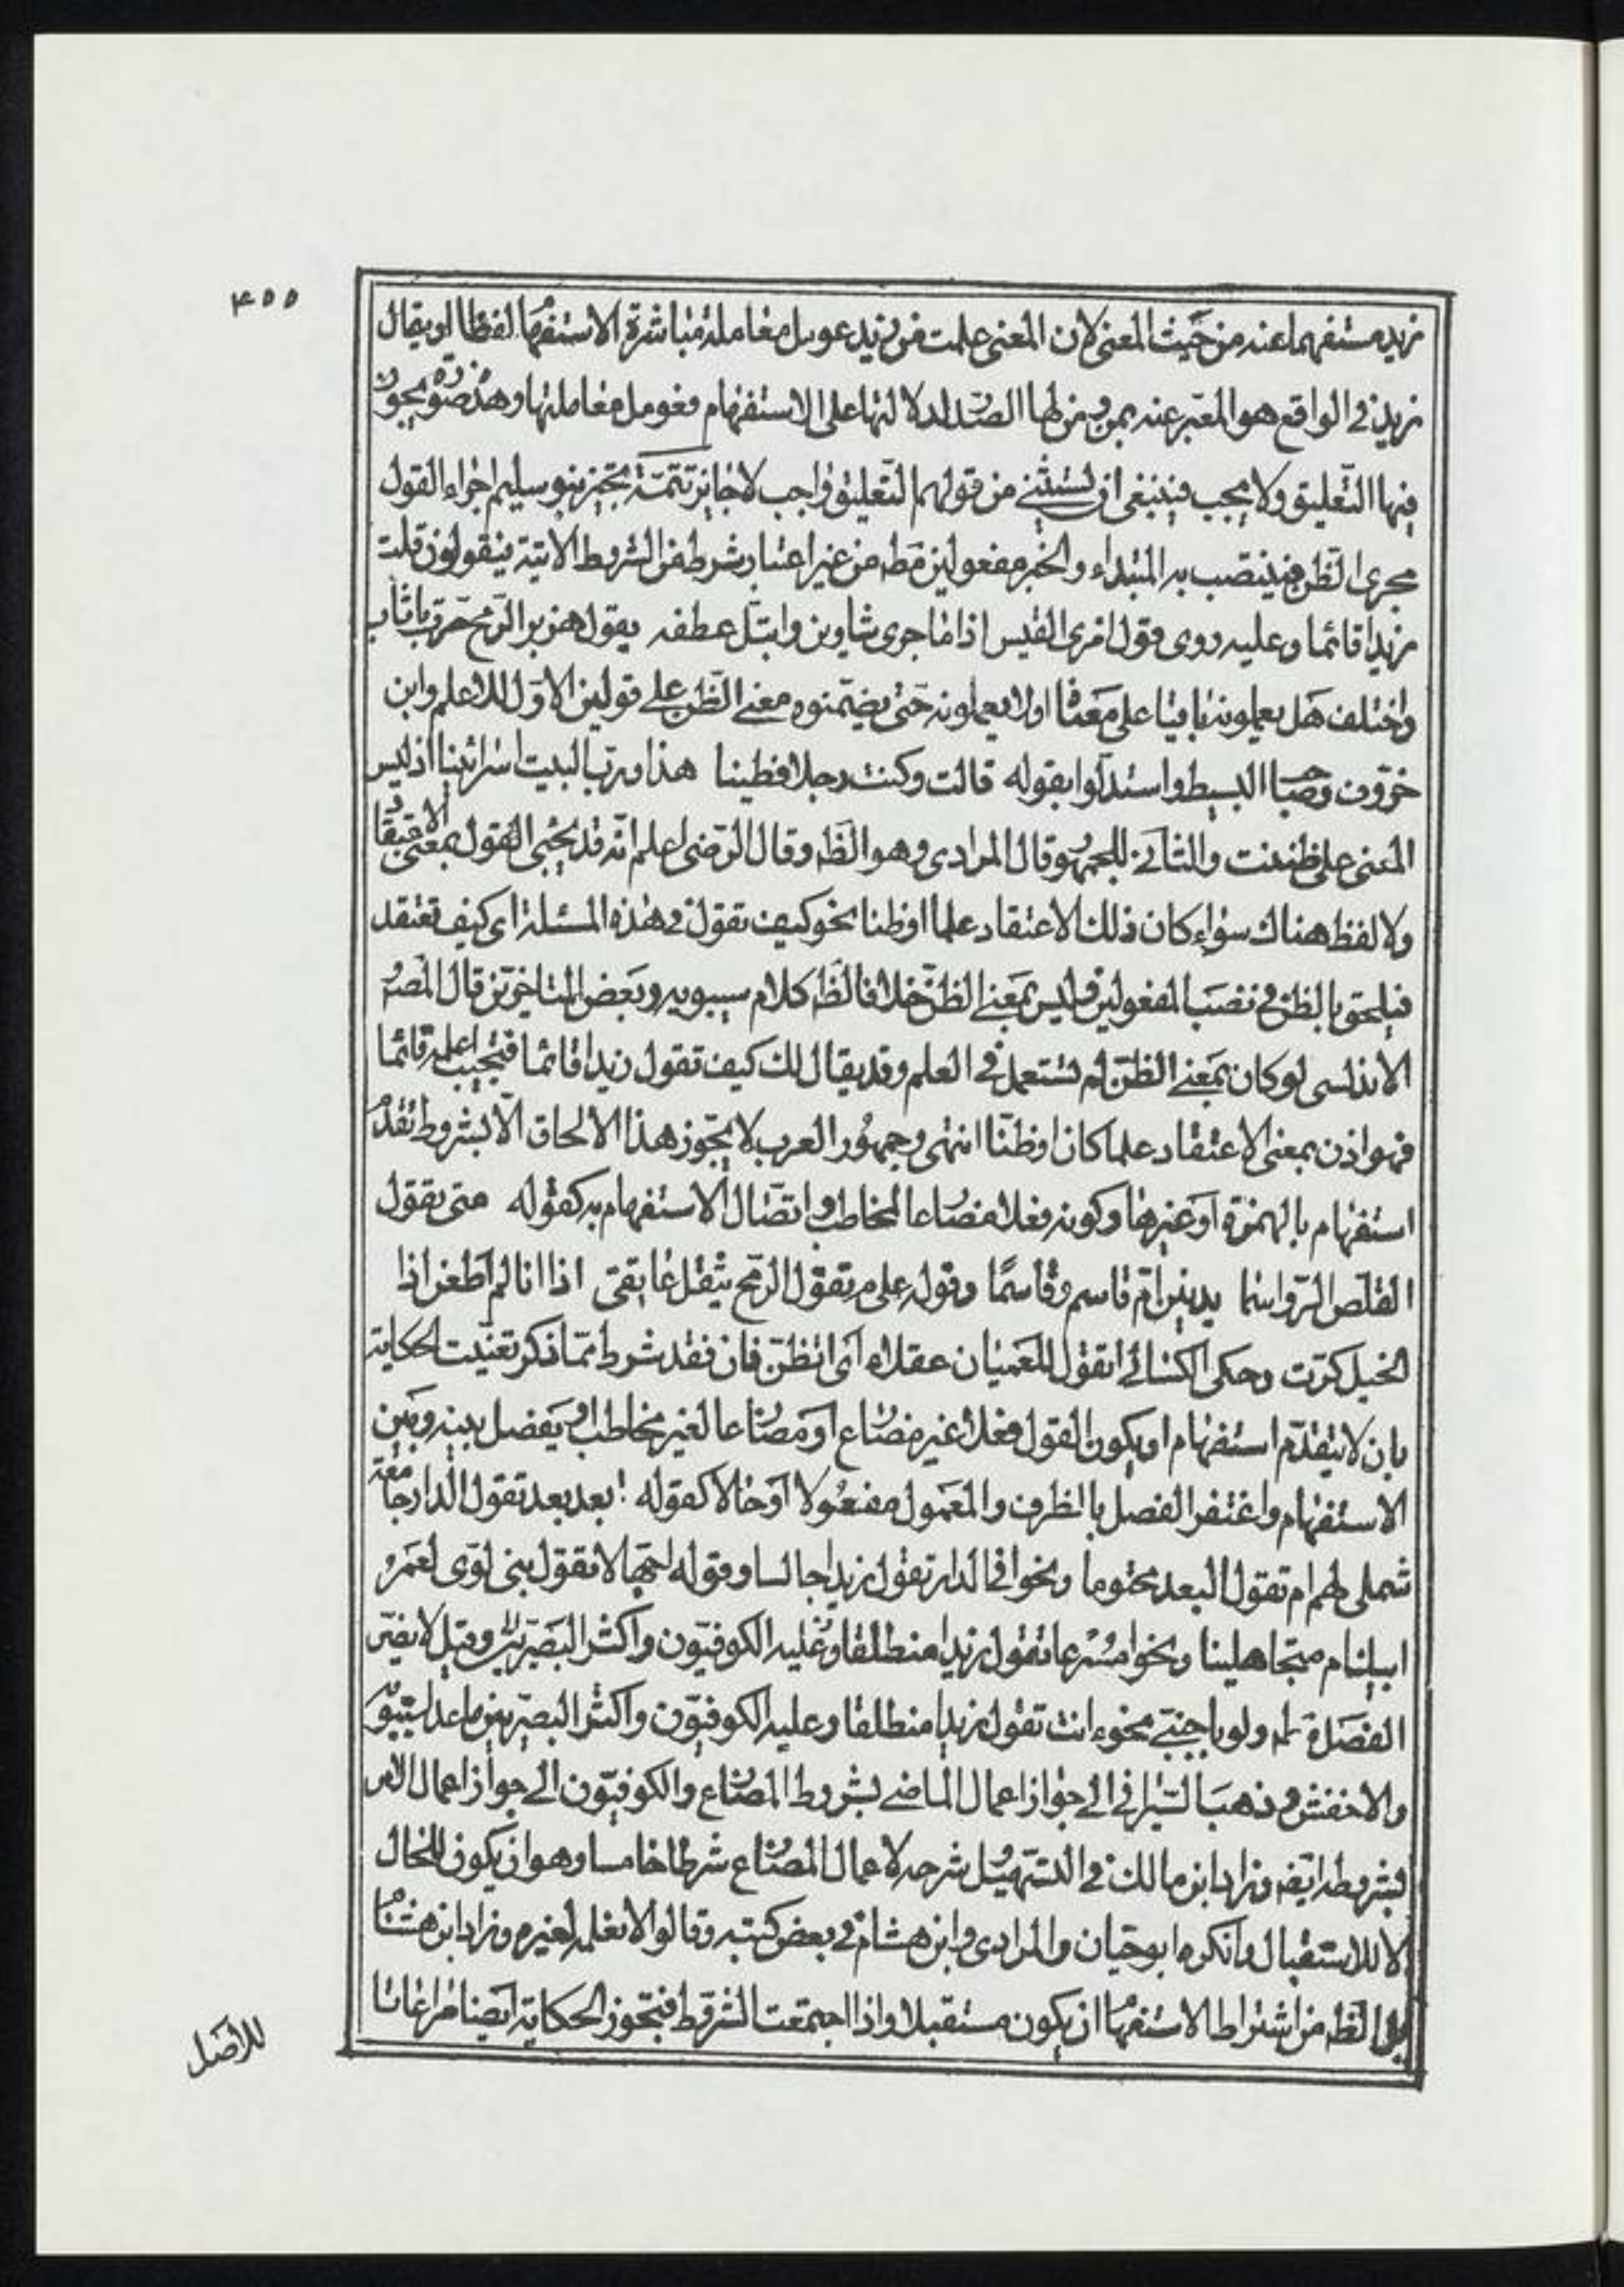 ٤٥٥
زيد مستفهما عنه من حيث المعنى لان المعنى علمت من زيد عومل معاملة مباشرة الاستفهام لفظا او يقال
زيد في الواقع هو المعبر عنه بمن ومن لها الصدر لدلالتها على الاستفهام فعومل معاملتها وهذه صورة يجوز
فيها التعليق ولا يجب فينبغي ان تستثنى من قولهم التعليق واجب لا جائز تتمة تجيز بنو سليم اجراء القول
مجرى الظن فينتصب به المبتداء والخبر مفعولين مط من غير اعتبار شرط من الشروط الاتية فيقولون قلت
زيدا قائما وعليه روى قول امرئ القيس اذا ما جرى شاوين وابتل عطفه يقول هزيز الريح مرت باثاب
واختلف هل يعملونه باقيا على معناه او لا يعملونه حتى يضمنوه معنى الظن على قولين الاول للاعلم وابن
خروف وصاحب البسيط واستدلوا بقوله قالت وكنت رجلا فطينا هذا ورب البيت اسرائينا اذ ليس
المعنى على ظننت والثاني للجمهور وقال المرادي وهو الظ وقال الرضي اعلم انه قد يجيئ القول بمعنى الاعتقاد
ولا لفظ هناك سواء كان ذلك الاعتقاد علما او ظنا نحو كيف تقول في هذه المسئلة اى كيف تعتقد
فيلحق بالظن في نصب المفعولين وليس بمعنى الظن خلافا لظ كلام سيبويه وبعض المتاخرين قال المص
الاندلسي لو كان بمعنى الظن لم تستعمل في العلم وقد يقال لك كيف تقول زيدا قائما فتجيب اعلمه قائما
فهو اذن بمعنى الاعتقاد علما كان او ظنا انتهى وجمهور العرب لا يجوز هذا الالحاق الا بشروط تقدم
استفهام بالهمزة او غيرها وكونه فعلا مضارعا لمخاطب واتصال الاستفهام به كقوله متى تقول
القلص الرواسما يدنين ام قاسم وقاسما وقوله علام تقول الرمح يثقل عاتقي اذا انا لم اطعن اذا
الخيل كرت وحكى الكسائي اتقول للعميان عقلا اى اتظن فان فقد شرط مما ذكر تعينت الحكاية
بان لا يتقدم استفهام او يكون القول فعلا غير مضارع او مضارعا لغير مخاطب او يفصل بينه وبين
الاستفهام واغتفر الفصل بالظرف والمعمول مفعولا او حالا كقوله ابعد بعد تقول الدار جامعة
شملى لهم ام تقول البعد محتوما ونحو افي الدار تقول زيدا جالسا وقوله اجهالا تقول بني لوى لعمر
ابيك ام متجاهلينا ونحو امسرعا تقول زيدا منطلقا وعليه الكوفيون واكثر البصريين وقيل لا يضر
الفصل مط ولو باجنبي نحو ءانت تقول زيدا منطلقا وعليه الكوفيون واكثر البصريين ما عدا سيبويه
والاخفش وذهب السيرافي الى جواز اعمال الماضي بشروط المضارع والكوفيون الى جواز اعمال الامر
بشروطه ايضا وزاد ابن مالك في التسهيل شرحه لاعمال المضارع شرطا خامسا وهو ان يكون للحال
لا للاستقبال وانكره ابو حيان والمرادي وابن هشام في بعض كتبه وقالوا لا نعلمه لغيره وزاد ابن هشام
بل الظ من اشتراط الاستفهام ان يكون مستقبلا واذا اجتمعت الشروط فتجوز الحكاية ايضا مراعاتا
للاصل